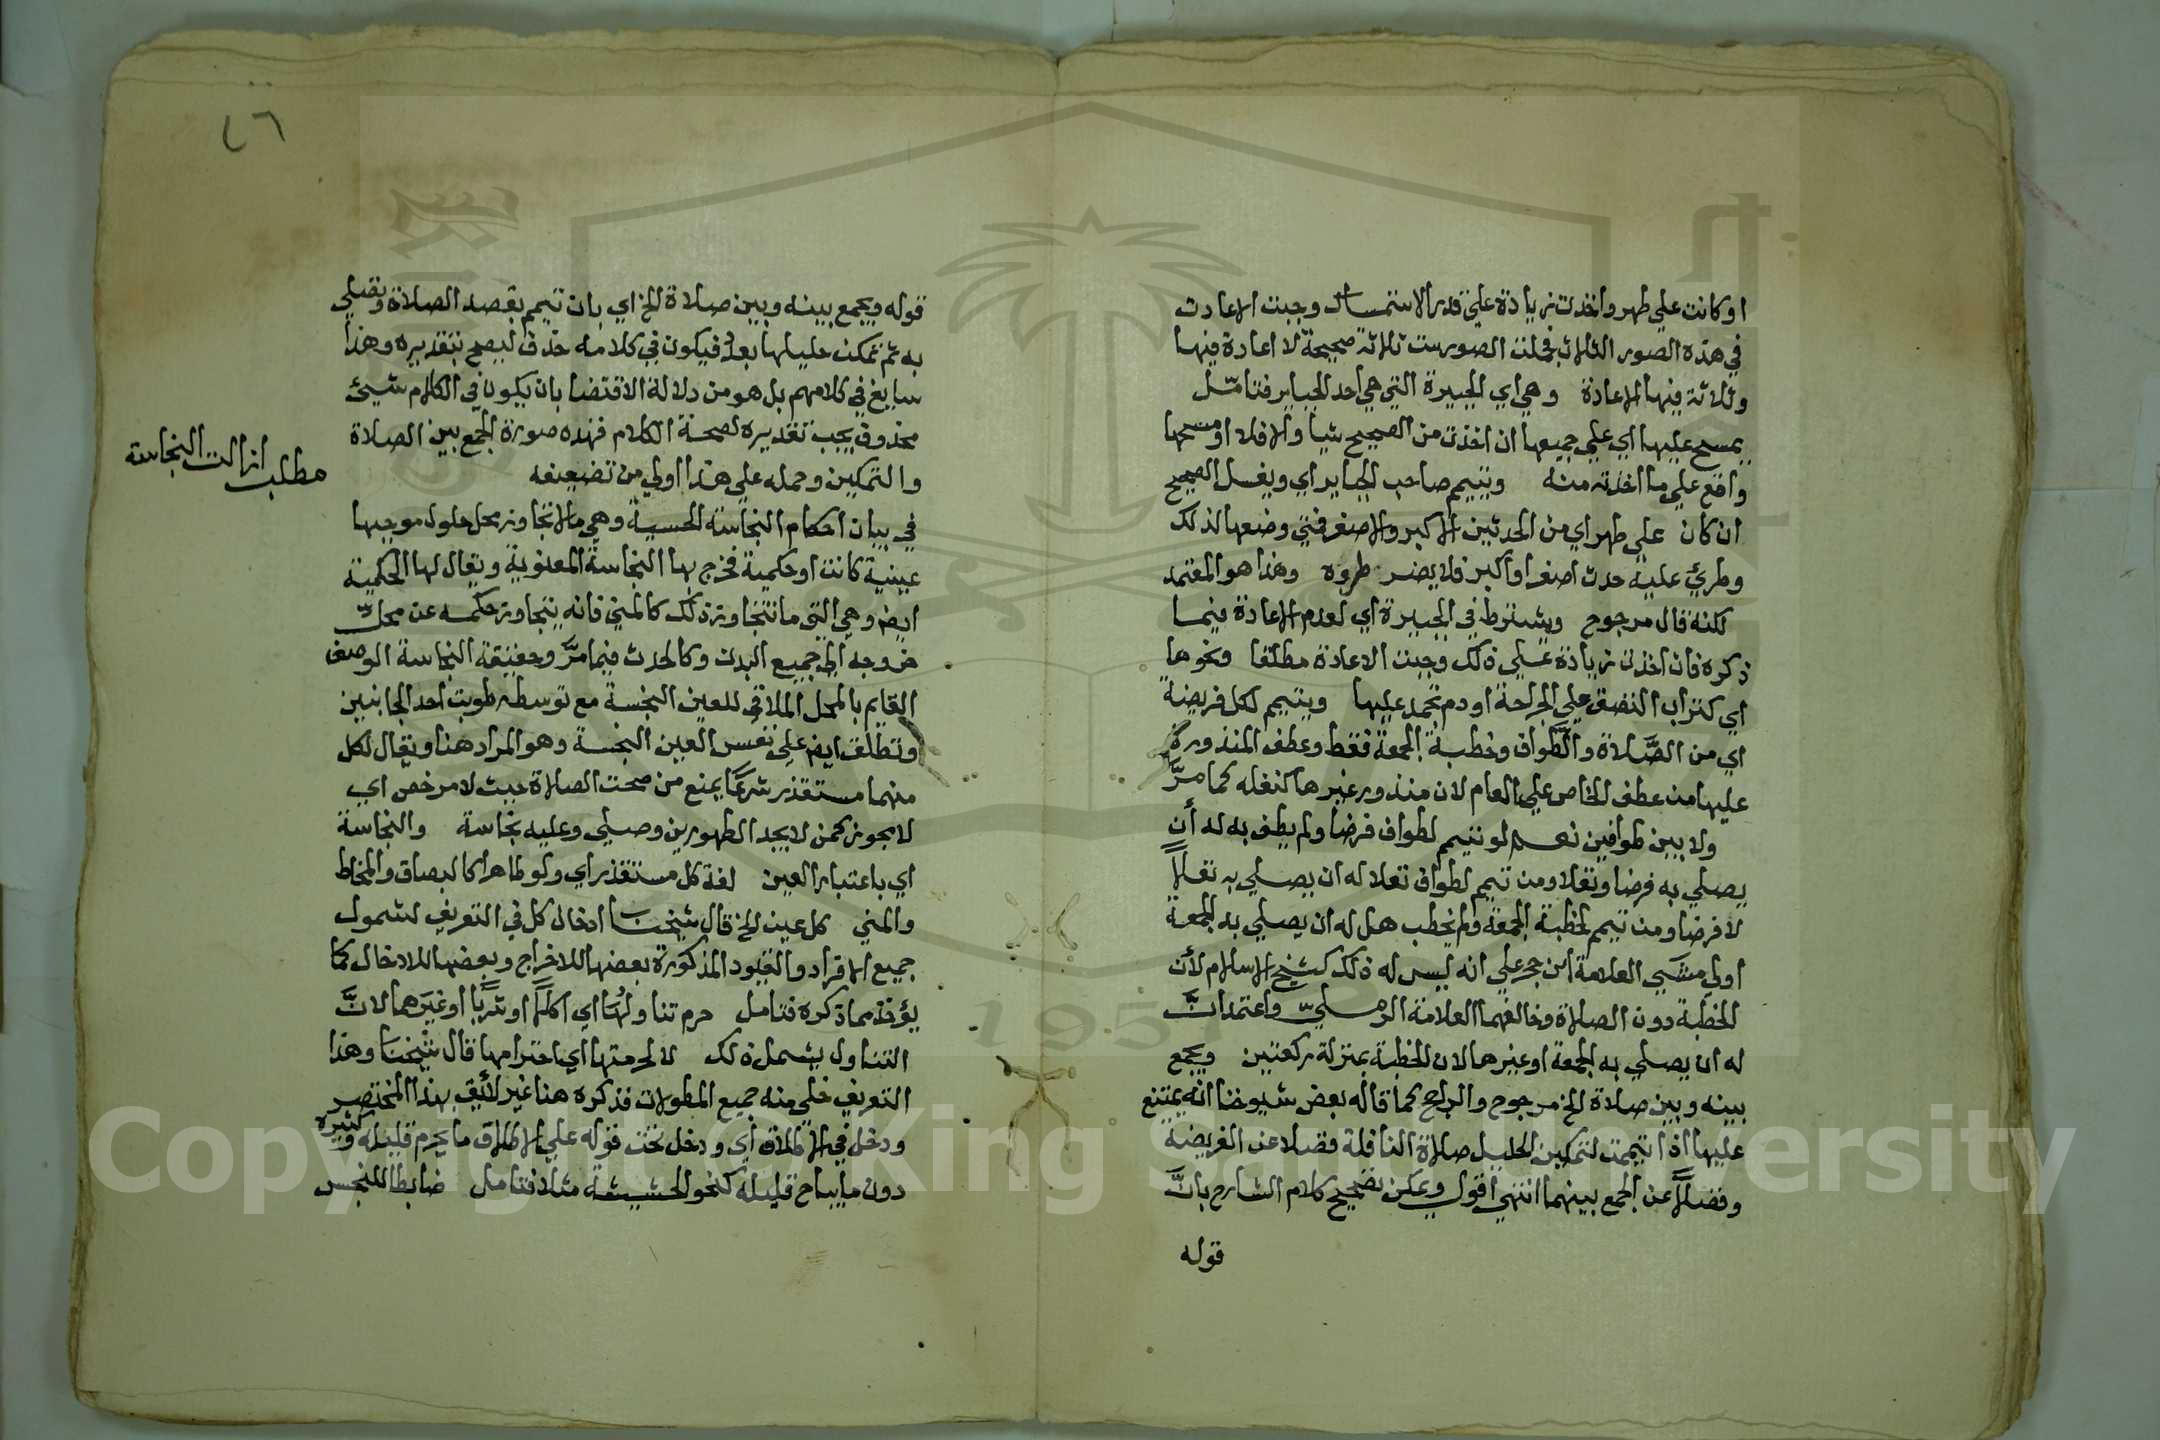 او كانت علي طهر واخذت زيادة علي قدر الاستمساك وجبت الاعادت
في هذه الصور الثلاث فجملت الصور ست ثلاثة صحيحة لا اعادة فيها
وثلاثة فيها الاعادة وهي اي الجبيرة التي هي احد الجباير فتامّل
يمسح عليها اي علي جميعها ان اخذت من الصحيح شيا والا فلا او مسحها
واقع علي ما اخذته منه ويتيمم صاحب الجباير اي ويغسل الصحيح
ان كان علي طهر اي من الحدثين الاكبر والاصغر فمتي وضعها لذلك
وطرئ عليه حدث اصغر او اكبر فلا يضر طروه وهذا هو المعتمد
لكنه قال مرجوح ويشترط في الجبيرة اي لعدم الاعادة فيما
ذكره فان اخذت زيادة علي ذلك وجبت الاعادة مطلقا ونحوها
اي كتراب التصق علي الجراحة او دم تجمد عليها ويتيمم لكل فريضة
اي من الصَّلاة والطَّواف وخطبة الجمعة فقط وعطف المنذورة
عليها من عطف الخاص علي العام لان منذور غيرها كنفله كما مرَّ
ولا بين طوافين نعم لو تيمم لطواف فرضا ولم يطف به له أن
يصلي به فرضا ونفلا ومن تيمم لطواف نفلا له ان يصلي به نفلاً
لا فرضا ومن تيمم لخطبة الجمعة ولم يخطب هل له ان يصلي به الجمعة
اولي مشي العلامة ابن حجر علي انه ليس له ذلك كشيخ الاسلام لأن
الخطبة دون الصلاة وخالفهما العلامة الرمليّ واعتمد انَّ
له ان يصلي به الجمعة او غيرها لان الخطبة بمنزلة ركعتين ويجمع
بينه وبين صلاة الخ مرجوح والراجح كما قاله بعض شيوخنا انه يمتنع
عليها اذا تيممت لتمكين الحليل صلاة النافلة فضلا عن الفريضة
وفضلاً عن الجمع بينهما انتهي اقول ويمكن تصحيح كلام الشارح بانَّ
قوله
٤٦
قوله ويجمع بينه وبين صلاة الخ اي بان تيمم بقصد الصلاة وتصلي
به ثم تمكن حليلها بعده فيكون في كلامه حذف ليصح بتقديره وهذا
سايغ في كلامهم بل هو من دلالة الاقتضا بان يكون في الكلام شيئ
محذوف يجب تقديره لصحة الكلام فهذه صورة الجمع بين الصلاة
والتمكين وحمله علي هذا اولي من تضعيفه
مطلب ازالت النجاسة
في بيان احكام النجاسة الحسية وهي ما لا تجاوز محل حلول موجبها
عينية كانت او حكمية فخرج بها النجاسة المعنوية ويقال لها الحكمية
ايض وهي التي ما تتجاوز ذلك كالمني فانه يتجاوز حكمه عن محلّ
خروجه الي جميع البدن وكالحدث فيما مرَّ وحقيقة النجاسة الوصف
القايم بالمحل الملاقي للعين النجسة مع توسط رطوبت احد الجانبين
وتطلق ايض علي نفس العين النجسة وهو المراد هنا ويقال لكل
منهما مستقذر شرعًا يمنع من صحت الصلاة حيث لا مرخص اي
لا مجوز كمن لا يجد الطهورين وصلي وعليه نجاسة والنجاسة
اي باعتبار العين لغة كل مستقذر اي ولو طاهرا كالبصاق والمخاط
والمني كل عين الخ قال شيخنا ادخال كل في التعريف لشمول
جميع الافراد والقيود المذكورة بعضها للاخراج وبعضها للادخال كما
يؤخذ مما ذكره فتامل حرم تناولها اي اكلاً او شربًا او غيرَهما لانَّ
التناول يشمل ذلك لا لحرمتها اي احترامها قال شيخنا وهذا
التعريف خلي منه جميع المطولات فذكره هنا غير لائق بهذا المختصر
ودخل في الاطلاق اي ودخل تحت قوله علي الاطلاق ما يحرم قليله وكثيره
دون ما يباح قليله كنحو الحشيشة مثلا فتامل ضابطا للنجس
Copyright © King Saud University
1957